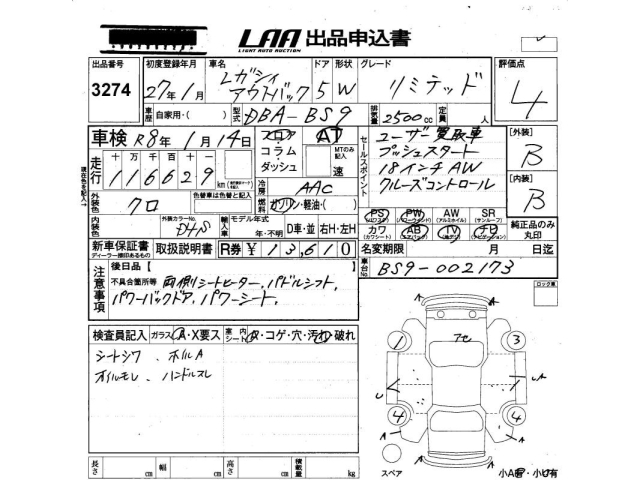 LAA 出品申込書
LIGHT AUTO AUCTION
出品番号 3274
初度登録年月 27年1月
車名 レガシィ アウトバック
ドア 形状 5 W
グレード リミテッド
評価点 4
車歴 自家用・( )
型式 DBA-BS9
排気量 2500cc
定員 人
車検 R8年1月14日
フロア コラム ダッシュ
AT
MTのみ記入 速
セールスポイント
ユーザー買取車
プッシュスタート
18インチAW
クルーズコントロール
[外装] B
[内装] B
走行 十万千百十 116629 km
冷房 AAC
燃料 ガソリン・軽油・( )
外装色 クロ
色替車は色替と記入
PS PW AW SR
カワ AB TV ナビ
純正品のみ丸印
内装色
外装カラーNo. D4S
輸入車 モデル年式 年・不明
D車・並 右H・左H
新車保証書 ディーラー捺印あるもの
取扱説明書
R券 ¥13,610
名変期限 月 日迄
車台No. BS9-002173
注意事項
後日品【 】
不具合箇所等 両側シートヒーター、パドルシフト、
パワーバックドア、パワーシート、
ロック車
検査員記入 ガラス A・X要ス 室内シート A・コゲ・穴・汚れ・破れ
シートシワ、ホイルA
オイルモレ、ハンドルスレ
長さ cm 幅 cm 高さ cm 積載量 kg
スペア
1 3
4 4
小A有・小U有